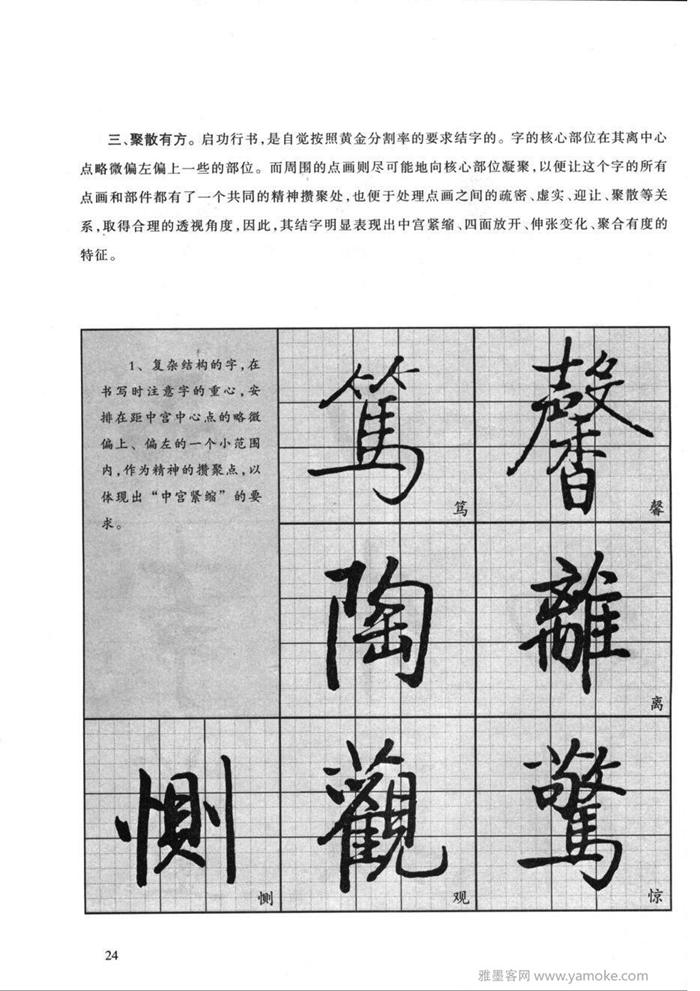 三、聚散有方。启功行书,是自觉按照黄金分割率的要求结字的。字的核心部位在其离中心
点略微偏左偏上一些的部位。而周围的点画则尽可能地向核心部位凝聚,以便让这个字的所有
点画和部件都有了一个共同的精神攒聚处,也便于处理点画之间的疏密、虚实、迎让、聚散等关
系,取得合理的透视角度,因此,其结字明显表现出中宫紧缩、四面放开、伸张变化、聚合有度的
特征。
1、复杂结构的字,在
书写时注意字的重心,安
排在距中宫中心点的略微
偏上、偏左的一个小范围
内,作为精神的攒聚点,以
体现出“中宫紧缩”的要
求。
篤
笃
馨
馨
陶
離
离
惻
恻
觀
观
驚
惊
24
雅墨客网 www.yamoke.com